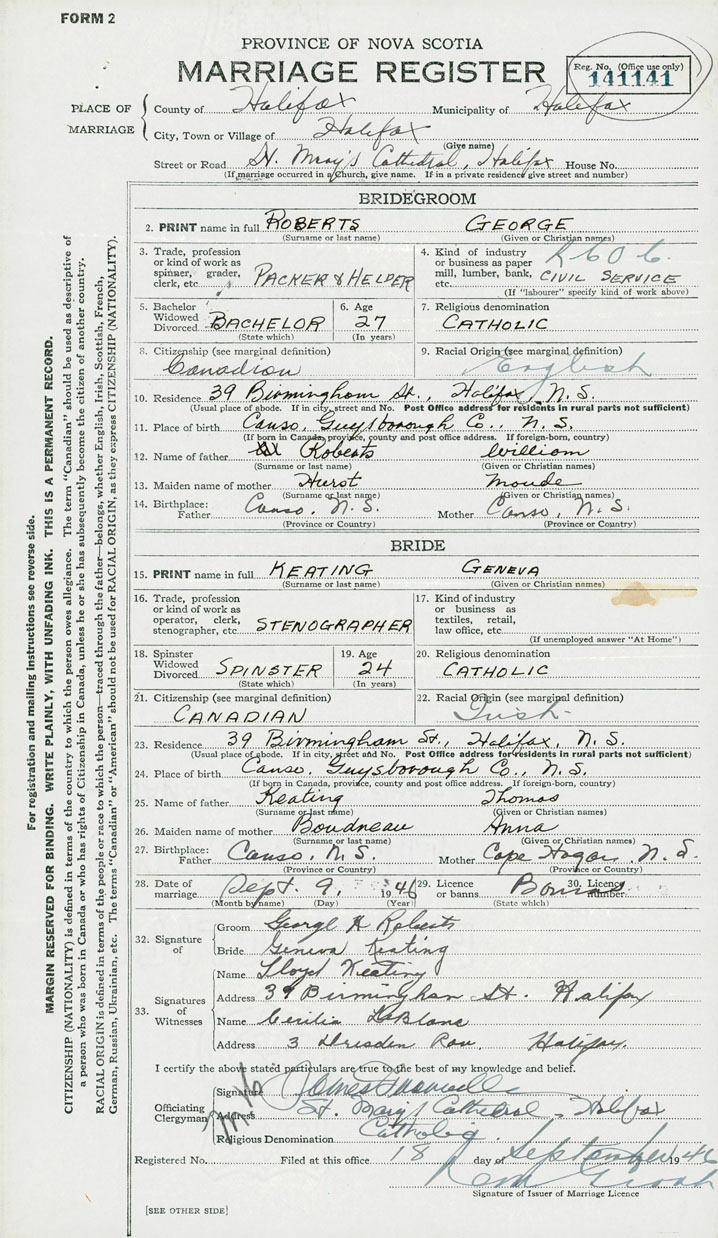 FORM 2
PROVINCE OF NOVA SCOTIA
MARRIAGE REGISTER
Reg. No. (Office use only)
141141
PLACE OF MARRIAGE
County of Halifax Municipality of Halifax
City, Town or Village of Halifax
(Give name)
Street or Road St. Mary's Cathedral, Halifax House No.
(If marriage occurred in a Church, give name. If in a private residence give street and number)
BRIDEGROOM
2. PRINT name in full ROBERTS GEORGE
(Surname or last name) (Given or Christian names)
3. Trade, profession or kind of work as spinner, grader, clerk, etc. PACKER & HELPER
4. Kind of industry or business as paper mill, lumber, bank, etc. CIVIL SERVICE
(If "labourer" specify kind of work above)
5. Bachelor Widowed Divorced BACHELOR
(State which)
6. Age 27
(In years)
7. Religious denomination
CATHOLIC
8. Citizenship (see marginal definition)
Canadian
9. Racial Origin (see marginal definition)
English
10. Residence 39 Birmingham St., Halifax, N. S.
(Usual place of abode. If in city, street and No. Post Office address for residents in rural parts not sufficient)
11. Place of birth Canso, Guysborough Co., N. S.
(If born in Canada, province, county and post office address. If foreign-born, country)
12. Name of father Roberts William
(Surname or last name) (Given or Christian names)
13. Maiden name of mother Hurst Maude
(Surname or last name) (Given or Christian names)
14. Birthplace: Father Canso, N. S. Mother Canso, N. S.
(Province or Country) (Province or Country)
BRIDE
15. PRINT name in full KEATING GENEVA
(Surname or last name) (Given or Christian names)
16. Trade, profession or kind of work as operator, clerk, stenographer, etc. STENOGRAPHER
17. Kind of industry or business as textiles, retail, law office, etc.
(If unemployed answer "At Home")
18. Spinster Widowed Divorced SPINSTER
(State which)
19. Age 24
(In years)
20. Religious denomination
CATHOLIC
21. Citizenship (see marginal definition)
CANADIAN
22. Racial Origin (see marginal definition)
Irish
23. Residence 39 Birmingham St., Halifax, N. S.
(Usual place of abode. If in city, street and No. Post Office address for residents in rural parts not sufficient)
24. Place of birth Canso, Guysborough Co., N. S.
(If born in Canada, province, county and post office address. If foreign-born, country)
25. Name of father Keating Thomas
(Surname or last name) (Given or Christian names)
26. Maiden name of mother Boudreau Anna
(Surname or last name) (Given or Christian names)
27. Birthplace: Father Canso, N. S. Mother Cape Hogan, N. S.
(Province or Country) (Province or Country)
28. Date of marriage Sept. 9, 1946
(Month by name) (Day) (Year)
29. Licence or banns Banns
(State which)
30. Licence number
32. Signature of
Groom George H Roberts
Bride Geneva Keating
33. Signatures of Witnesses
Name Lloyd Keating
Address 39 Birmingham St. Halifax
Name Cecilia LeBlanc
Address 3 Dresden Row, Halifax.
I certify the above stated particulars are true to the best of my knowledge and belief.
Officiating Clergyman
Signature James
Address St. Mary's Cathedral - Halifax
Religious Denomination Catholic
Registered No. Filed at this office 18 day of September 1946
Signature of Issuer of Marriage Licence
[SEE OTHER SIDE]
For registration and mailing instructions see reverse side.
MARGIN RESERVED FOR BINDING. WRITE PLAINLY, WITH UNFADING INK. THIS IS A PERMANENT RECORD.
CITIZENSHIP (NATIONALITY) is defined in terms of the country to which the person owes allegiance. The term "Canadian" should be used as descriptive of
a person who was born in Canada or who has rights of Citizenship in Canada, unless he or she has subsequently become the citizen of another country.
RACIAL ORIGIN is defined in terms of the people or race to which the person—traced through the father—belongs, whether English, Irish, Scottish, French,
German, Russian, Ukrainian, etc. The terms "Canadian" or "American" should not be used for RACIAL ORIGIN, as they express CITIZENSHIP (NATIONALITY).